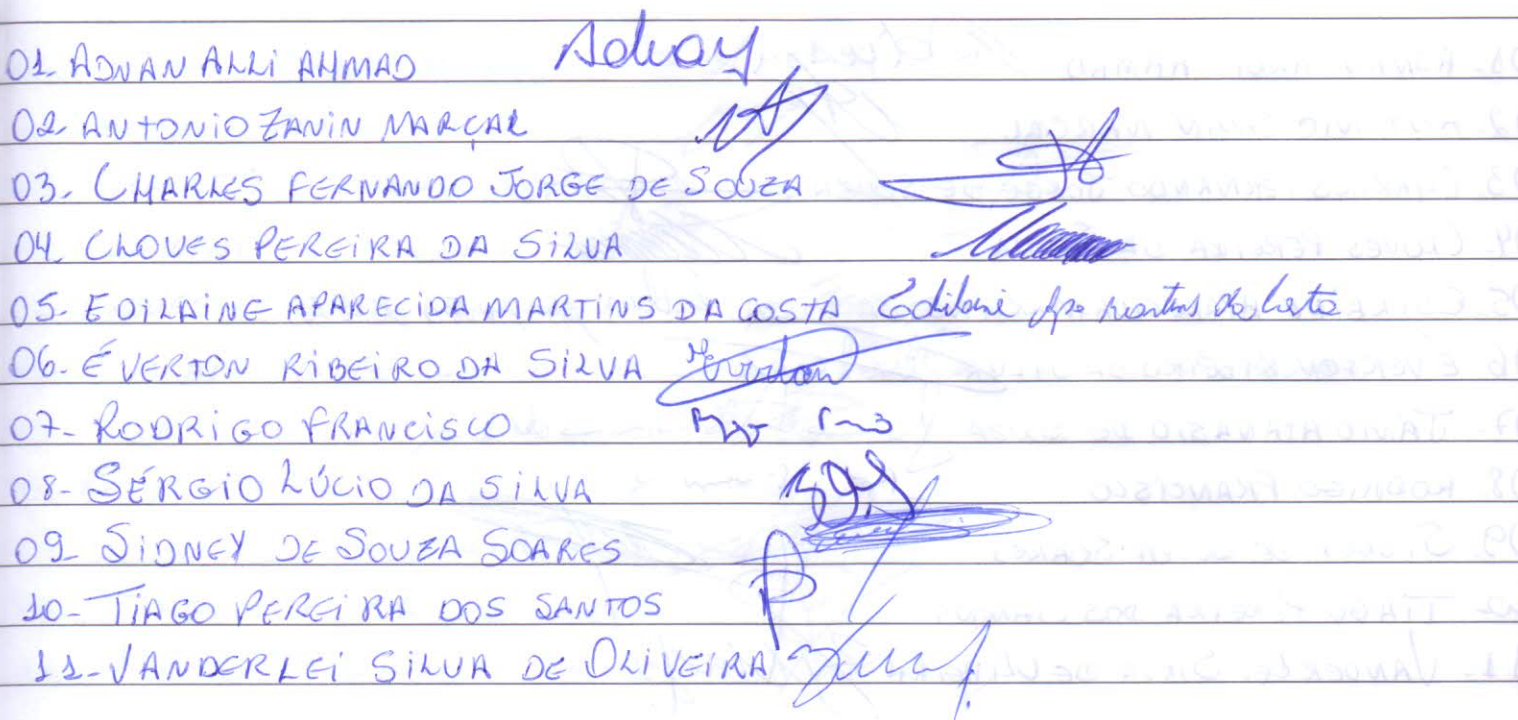 01- ADNAN ALLI AHMAD Adnan
02- ANTONIO ZANIN MARÇAL
03- CHARLES FERNANDO JORGE DE SOUZA
04- CLOVES PEREIRA DA SILVA
05- EDILAINE APARECIDA MARTINS DA COSTA Edilaine Apa martins da Costa
06- ÉVERTON RIBEIRO DA SILVA Everton
07- RODRIGO FRANCISCO
08- SÉRGIO LÚCIO DA SILVA
09- SIDNEY DE SOUZA SOARES
10- TIAGO PEREIRA DOS SANTOS
11- VANDERLEI SILVA DE OLIVEIRA